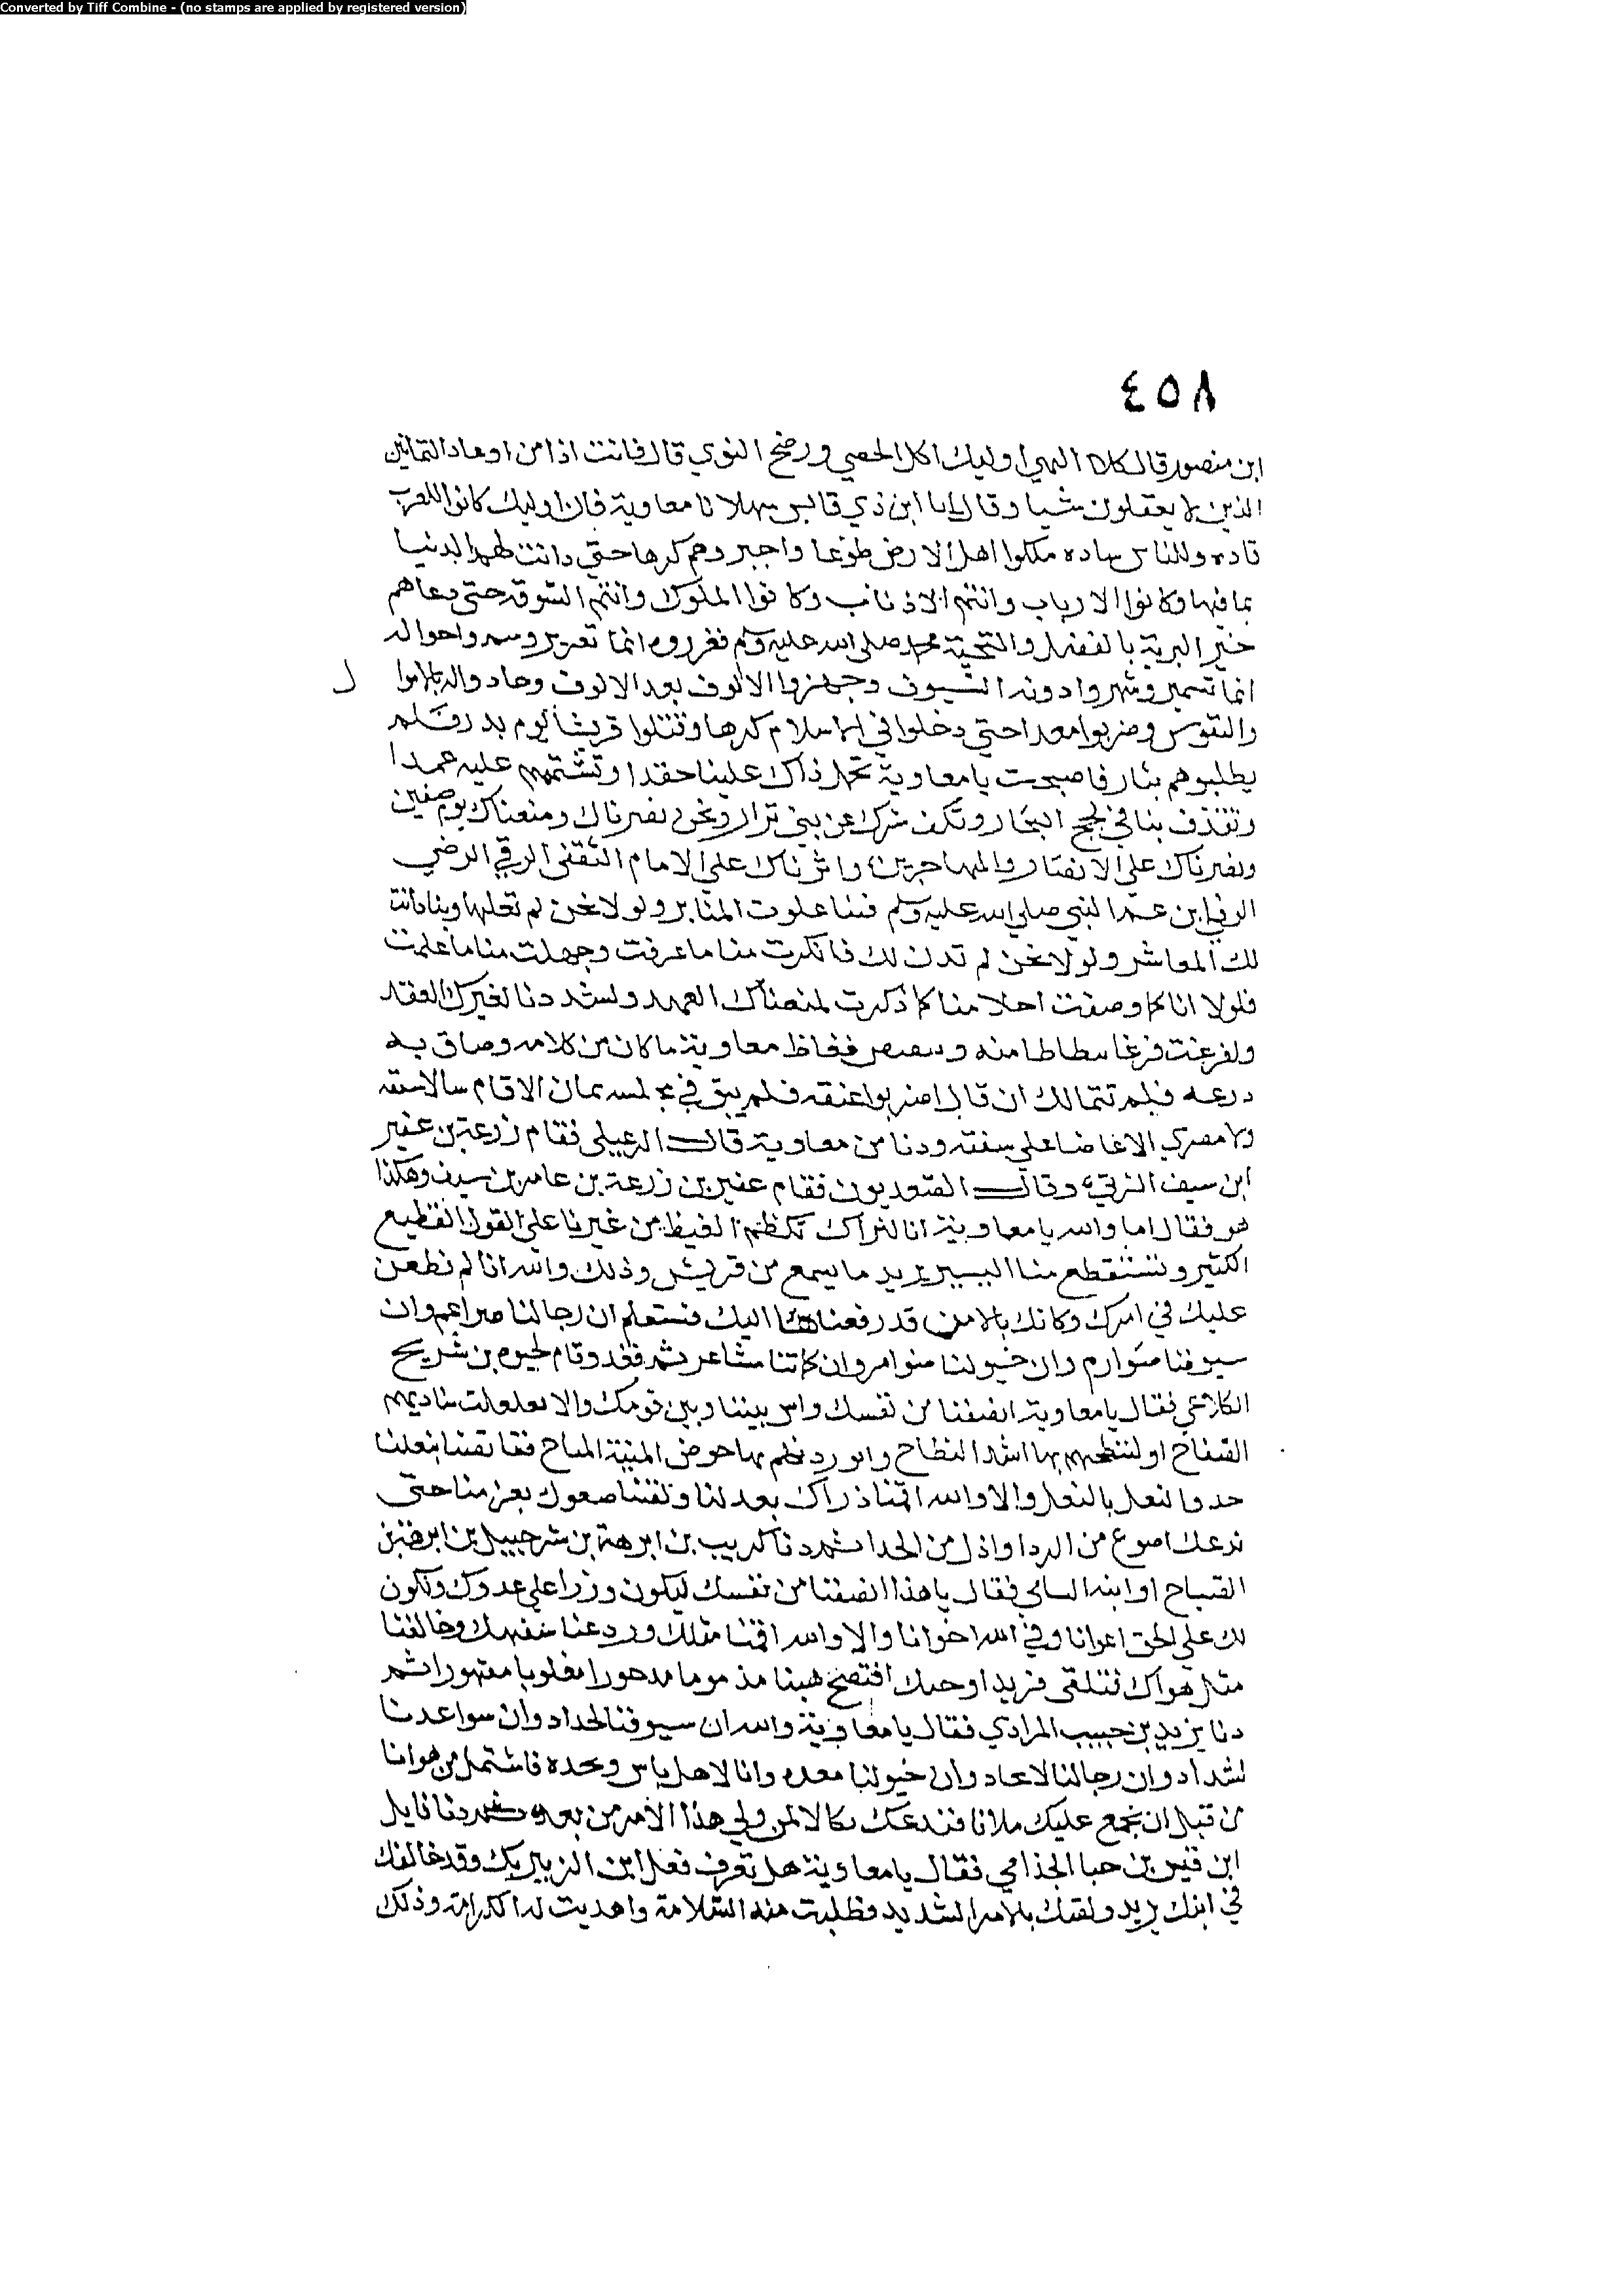 Converted by Tiff Combine - (no stamps are applied by registered version)
٤٥٨
ابن منصور قال كلا اوليك اكل الحصي ورضخ النوي قال فانت اذا من اوعاد الثمانين
الذين لا يعقلون شيا وقال ابن ذي مهلا نا معاوية فان اوليك كانوا للعرب
قاده وللناس ساده ملكوا اهل الارض طوعا واجبروهم كرها حتي دانت لهم الدنيا
بما فيها وكانوا الارباب وانتم الاذناب وكانوا الملوك وانتم السوقه حتي دعاهم
خير البرية بالفضل والتحية محمد صلي الله عليه وسلم فعزروه انما تعزير واحواله
انما تشمير وشهروا دونه السيوف وجهزوا الالوف بعد الالوف وجادوا له بالاموا
ل
والنفوس وضربوا معدا حتي دخلوا في الاسلام كرها وقتلوا قريشا يوم بدر فلم
يطلبوهم بثار فاصبحت يا معاوية تحمل ذاك علينا حقدا وتشتمهم عليه عمدا
وتقذف بنا في لجج البحار وتكف شرك عن بني نزار ونحن نصرناك ومنعناك يوم صفين
ونصرناك علي الانصار والمهاجرين واثرناك علي الامام الثقفي الرضي
الوفي ابن عم النبي صلي الله عليه وسلم فبنا علوت المنابر ولولا نحن لم تعلها وبنا دانت
لك المعاشر ولولا نحن لم تدن لك فانكرت منا ما عرفت وجهلت منا ما علمت
فلولا انا كما وصفت احلامنا كما ذكرت لمنعناك العهد ولشددنا لغيرك العقد
ولقرعت قرعا منه فغاظ معاوية ما كان من كلامه وضاق به
درعه فلم تتمالك ان قال اضربوا عنقه فلم يبق في مجلسه يمان الا قام سالا سيفه
ولا مضري الا عاضا علي شفته ودنا من معاوية قال الدعبلي فقام زرعة بن عفير
ابن سيف وقال فقام عفير بن زرعة بن عامر بن سيف وهكذا
هو فقال اما والله يا معاوية انا لنراك تكظم الغيظ من غيرنا علي القول الفظيع
الكثير منا اليسير يريد ما يسمع من قريش وذلك والله انا لم نطعن
عليك في امرك وكانك بالامر قد رفعناه اليك فستعلم ان رجالنا ضراغم وان
سيوفنا صوارم وان خيولنا ضوامر وان كماتنا مشاعر ثم قعد وقام لحيوه بن شريح
الكلاعي فقال يا معاوية انصفنا من نفسك واس بيننا وبين قومك والا
الصفاح او لننطحهم بها اشد النطاح ولنوردنهم بها حوض المنية المتاح فقايضنا بفعلنا
حدو النعل بالنعل والا والله اقمنا ذراك بعدلنا ولقينا صعوك بعزمنا حتي
ندعك اصوع من الردا واذل من الحذا ثم دنا كريب بن ابرهة بن شرحبيل بن ابرهة بن
الصباح فقال يا هذا انصفنا من نفسك ليكون وزرا علي عدوك ونكون
لك علي الحق اعوانا وفي الله اخوانا والا والله اقمنا ميلك وردعنا سفهك وخالفنا
ميل هواك فتلقي فريدا وحيدا مذموما مدحورا مغلوبا مقهورا ثم
دنا يزيد بن حبيب المرادي فقال يا معاوية والله ان سيوفنا لحداد وان سواعدنا
لشداد وان رجالنا لانجاد وان خيولنا معده وانا لاهل باس ونجده فاستمل من هوانا
من قبل ان نجمع عليك ملانا فندعك نكالا لمن ولي هذا الامر من بعدك ثم دنا نايل
ابن قيس بن حيا الجذامي فقال يا معاوية هل تعرف فعل ابن الزبير بك وقد خالفك
في ابنك يزيد ولقيك بالامر الشديد فطلبت منه السلامة واهديت له الكرامة وذلك